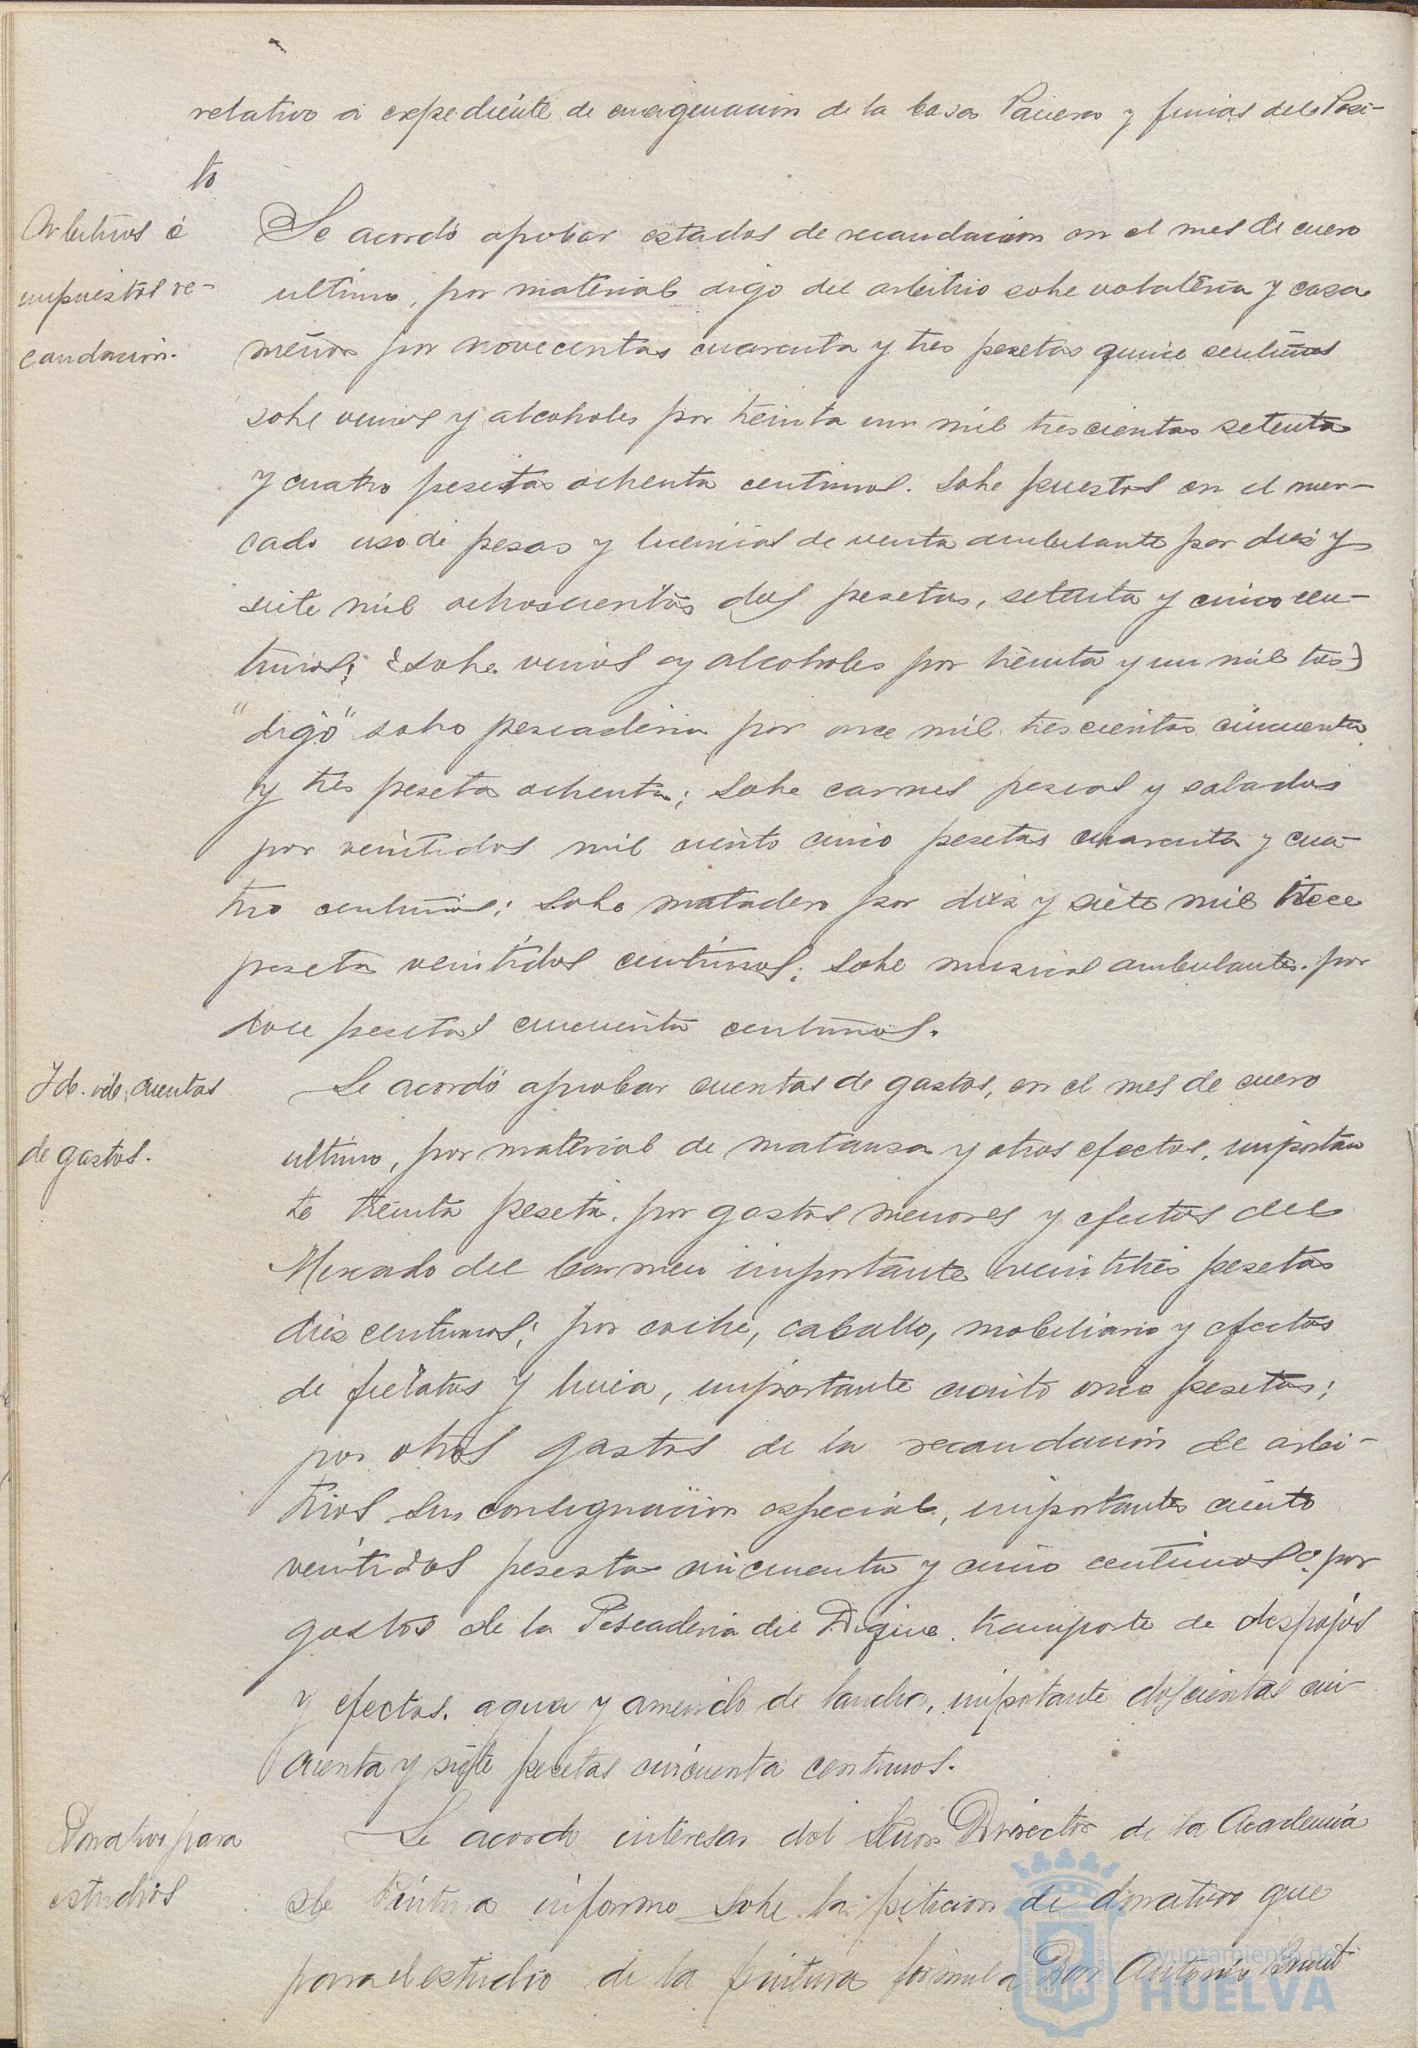 relativo a expediente de enagenación de la Casa Panera y fincas del Posi-
to
Arbitrios é
impuestos re-
caudación.
Se acordó aprobar estados de recaudación en el mes de enero
ultimo, por material digo del arbitrio sobre volatería y casa
menor por novecentas cuarenta y tres pesetas quince centimos
sobre vinos y alcoholes por treinta un mil trescientas setenta
y cuatro pesetas ochenta centimos. Sobre puestos en el mer-
cado uso de pesas y licencias de venta ambulante por dies y
siete mil ochoscientas dos pesetas, setenta y cinco cen-
timos; (sobre vinos y alcoholes por treinta y un mil tres)
"digo" sobre pescaderia por once mil trescientas cincuenta
y tres peseta ochenta; sobre carnes pescas y salados
por veintidos mil ciento cinco pesetas cuarenta y cua-
tro centimos; sobre matadero por dies y siete mil trece
peseta veintidos centimos; sobre musicos ambulantes. por
doce pesetas cincuenta centimos.
Id. id. cuentas
de gastos.
Se acordó aprobar cuentas de gastos, en el mes de enero
ultimo, por material de matansa y otros efectos, importan
te treinta peseta. por gastos menores y efectos del
Mercado del Carmen importante veintitres pesetas
dies centimos; por coche, caballo, mobiliario y efectos
de fielatos y linea, importante ciento once pesetas;
por otros gastos de la recaudación de arbi-
trios sin consignación especial, importante ciento
veintidos peseta cincuenta y cinco centimos por
gastos de la Pescaderia del Dique. transporte de despojos
y efectos, agua y arriendo de lancha, importante doscientas cin-
cuenta y siete pesetas cincuenta centimos.
Donativo para
estudios
Se acordo interesar del Señor Director de la Academia
de Pintura informe sobre la peticion de donativo que
para el estudio de la pintura formula Don Antonio Brunt
Ayuntamiento de
HUELVA